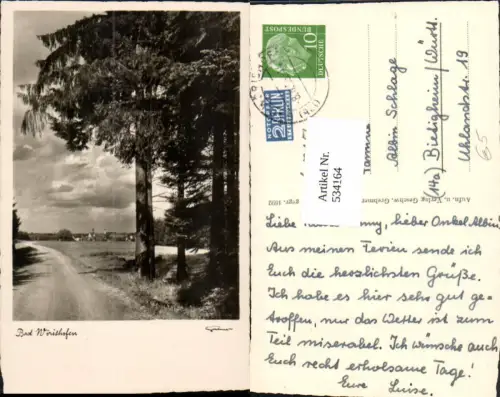 Bad Wörishofen
10
DEUTSCHE
BUNDESPOST
NOTOPFER
2 BERLIN
STEUERMARKE
Artikel Nr.
534164
Familie
Albin Schlage
(14a) Bietigheim/Württ.
Uhlandstr. 19
Aufn. u. Verlag Geschw.
Liebe lieber Onkel Albin!
Aus meinen Ferien sende ich
Euch die herzlichsten Grüße.
Ich habe es hier sehr gut ge-
troffen, nur das Wetter ist zum
Teil miserabel. Ich wünsche auch
Euch recht erholsame Tage!
Eure Luise.